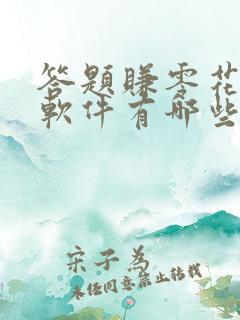 答題賺零花
軟件有哪些
宋子為
未经同意禁止转载